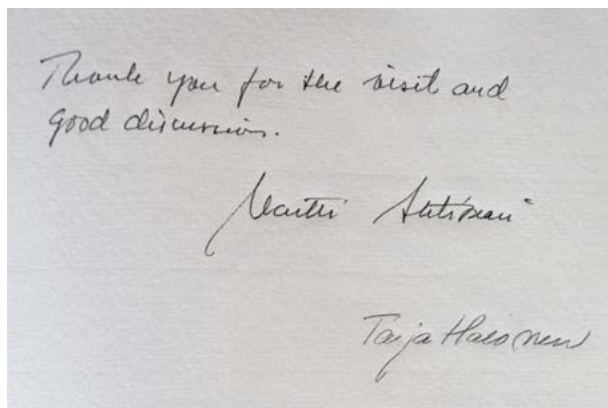 Thank you for the visit and
good discussion.
Martti Ahtisaari
Tarja Halonen